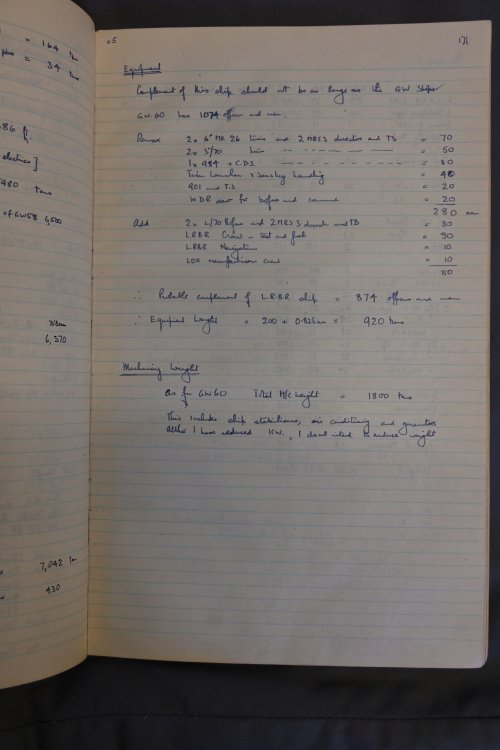 = 164 tons
= 34 tons
electrics]
980 tons
6,500
6,370
7,042
430
65
Equipment
Complement of this ship should not be as large as the GW Ships
GW 60 has 1074 officers and men.
Remove 2 x 6" MK 26 turrets and 2 MRS3 directors and TS = 70
2 x 3"/70 twin - - - - - - - = 50
1 x 984 + C.D.S. - - - - - - - = 80
Twin Launcher + Seaslug handling = 40
901 and TS = 20
WDR for before and command = 20
280 men
Add 2 x L/70 Bofors and 2 MRS3 directors and TS = 30
LRBR Crew - test and fuel = 30
LRBR Navigation = 10
LOX manufacture crew = 10
80
∴ Probable complement of L.R.B.R ship = 874 officers and men
∴ Equipment weight = 200 + 0.825 = 920 tons
Machinery Weight
As for GW60 Total M/C weight = 1800 tons
This includes ship stabilisers, air conditioning and generators
Altho' I have reduced KW., I do not intend to reduce weight